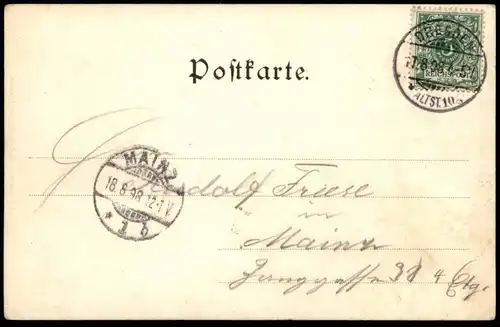 DRESDEN
17.8.98
ALTST. 10
REICHSPOST
Postkarte.
MAINZ
18.8.98. 12-1 V
* 1 b
Rudolf Friese
in
Mainz
4 Etg.